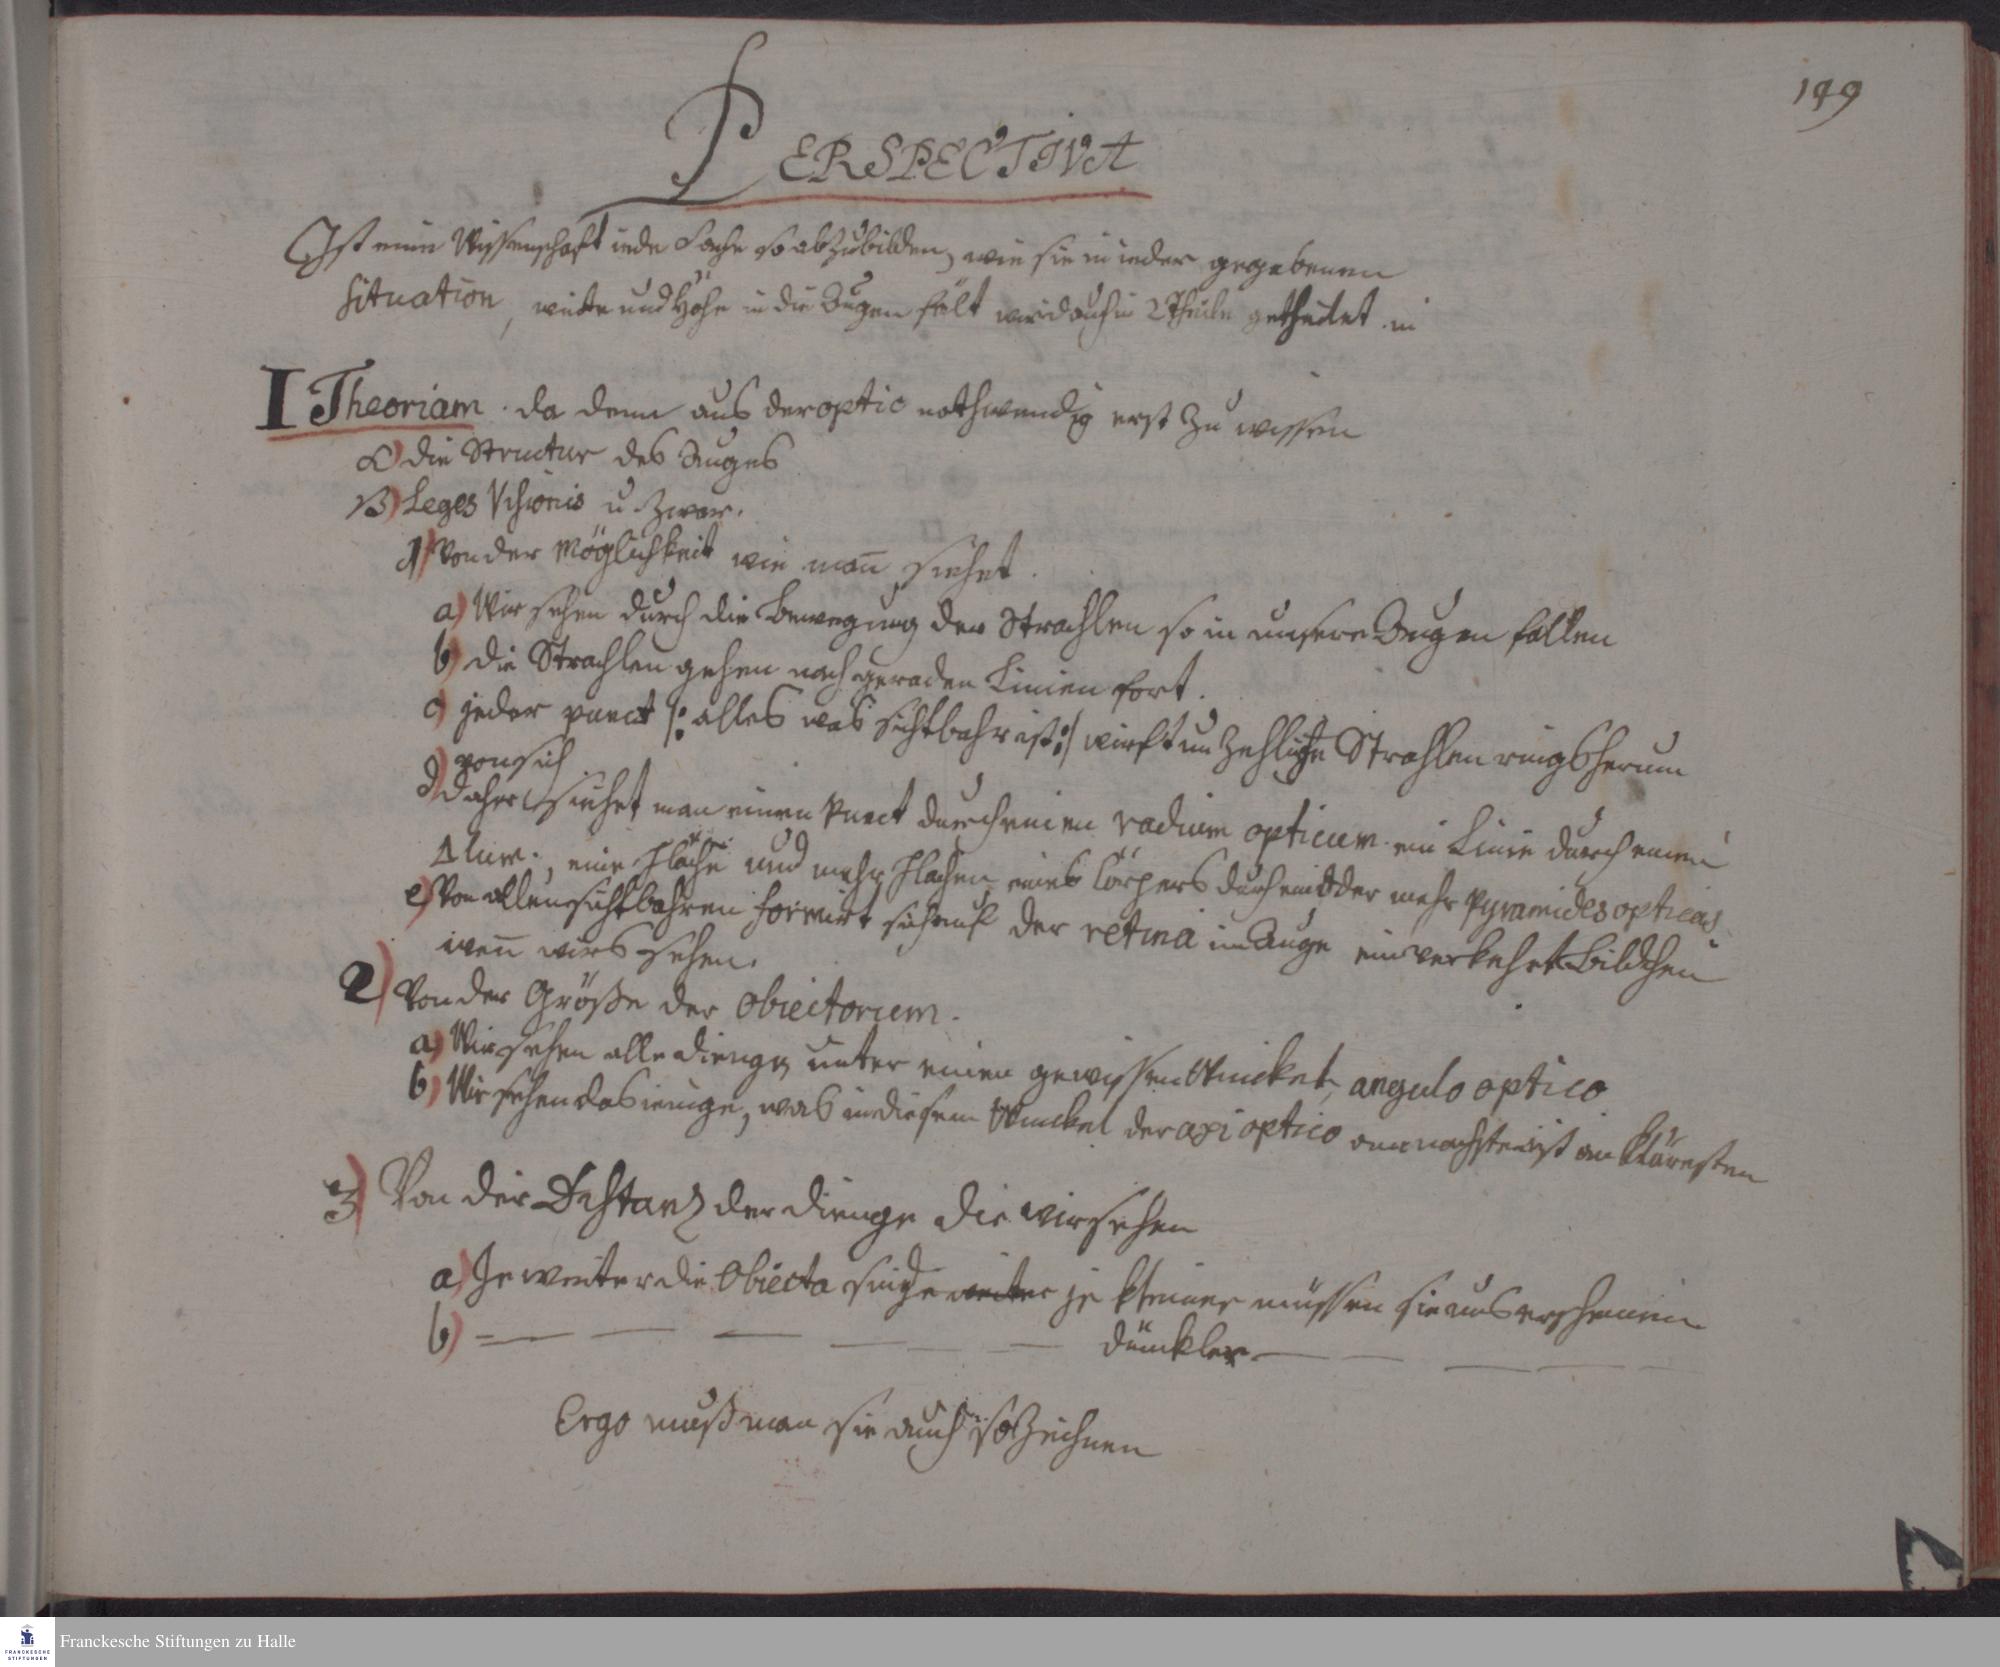 149
PERSPECTIVA
Ist eine Wissenschaft iede Sache so abzubilden, wie sie in ieder gegebenen
Situation, weite und Höhe in die Augen fält wird auch in 2 Theile getheilet in
I Theoriam. da denn aus der optic nothwendig erst zu wissen
α) die Structur des Auges
β) Leges Visionis u. zwar.
1) Von der Möglichkeit wie man siehet.
a) Wir sehen durch die Bewegung der Strahlen so in unsere Augen fallen
b) die Strahlen gehen nach geraden Linien fort.
c) jeder punct /: alles was sichtbahr ist :/ wirft unzehlige Strahlen rings herum
von sich
d) daher siehet man einen Punct durch einen radium opticum. ein Linie durch einen
Δlum., eine Fläche und mehr Flächen eines Cörpers durch ein oder mehr pyramides opticas
e) Von allen sichtbahren formirt sich auf der retina im Auge ein verkehrt Bildchen
wen̄ wirs sehen.
2) Von der Größe der Obiectorum.
a) Wir sehen alle dienge unter einen gewissen Winckel, angulo optico
b) Wir sehen das ienige, was in diesem Winckel der axi optico am nachsten ist am klaresten
3) Von der Distanz der dienge die wir sehen
a) Je weiter die Obiecta sind je weiter je kleiner müssen sie uns erscheinen.
b) = — — — — — — dunckler — — — — —
Ergo muß man sie auch so zeichnen
Franckesche Stiftungen zu Halle
FRANCKESCHE
STIFTUNGEN